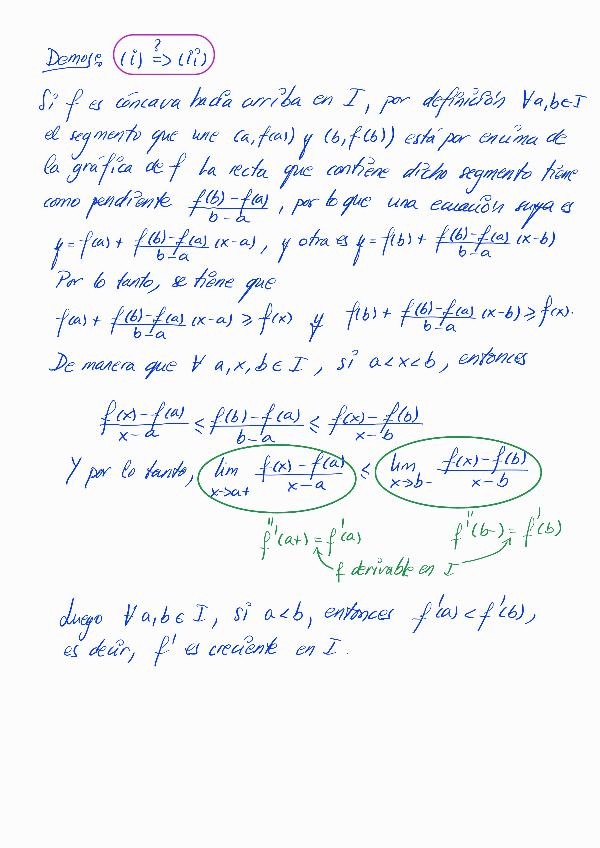 Demos: (i) ?=> (ii)
Si f es cóncava hacia arriba en I, por definición ∀a,b∈I
el segmento que une (a,f(a)) y (b,f(b)) está por encima de
la gráfica de f La recta que contiene dicho segmento tiene
como pendiente (f(b)-f(a))/(b-a), por lo que una ecuación suya es
y=f(a)+ (f(b)-f(a))/(b-a) (x-a), y otra es y=f(b)+ (f(b)-f(a))/(b-a) (x-b)
Por lo tanto, se tiene que
f(a)+ (f(b)-f(a))/(b-a) (x-a) ≥ f(x) y f(b)+ (f(b)-f(a))/(b-a) (x-b) ≥ f(x).
De manera que ∀ a,x,b∈I, si a<x<b, entonces
(f(x)-f(a))/(x-a) ≤ (f(b)-f(a))/(b-a) ≤ (f(x)-f(b))/(x-b)
Y por lo tanto, lim x->a+ (f(x)-f(a))/(x-a) ≤ lim x->b- (f(x)-f(b))/(x-b)
f'(a+) = f'(a) f'(b-) = f'(b)
f derivable en I
Luego ∀ a,b∈I, si a<b, entonces f'(a)<f'(b),
es decir, f' es creciente en I.